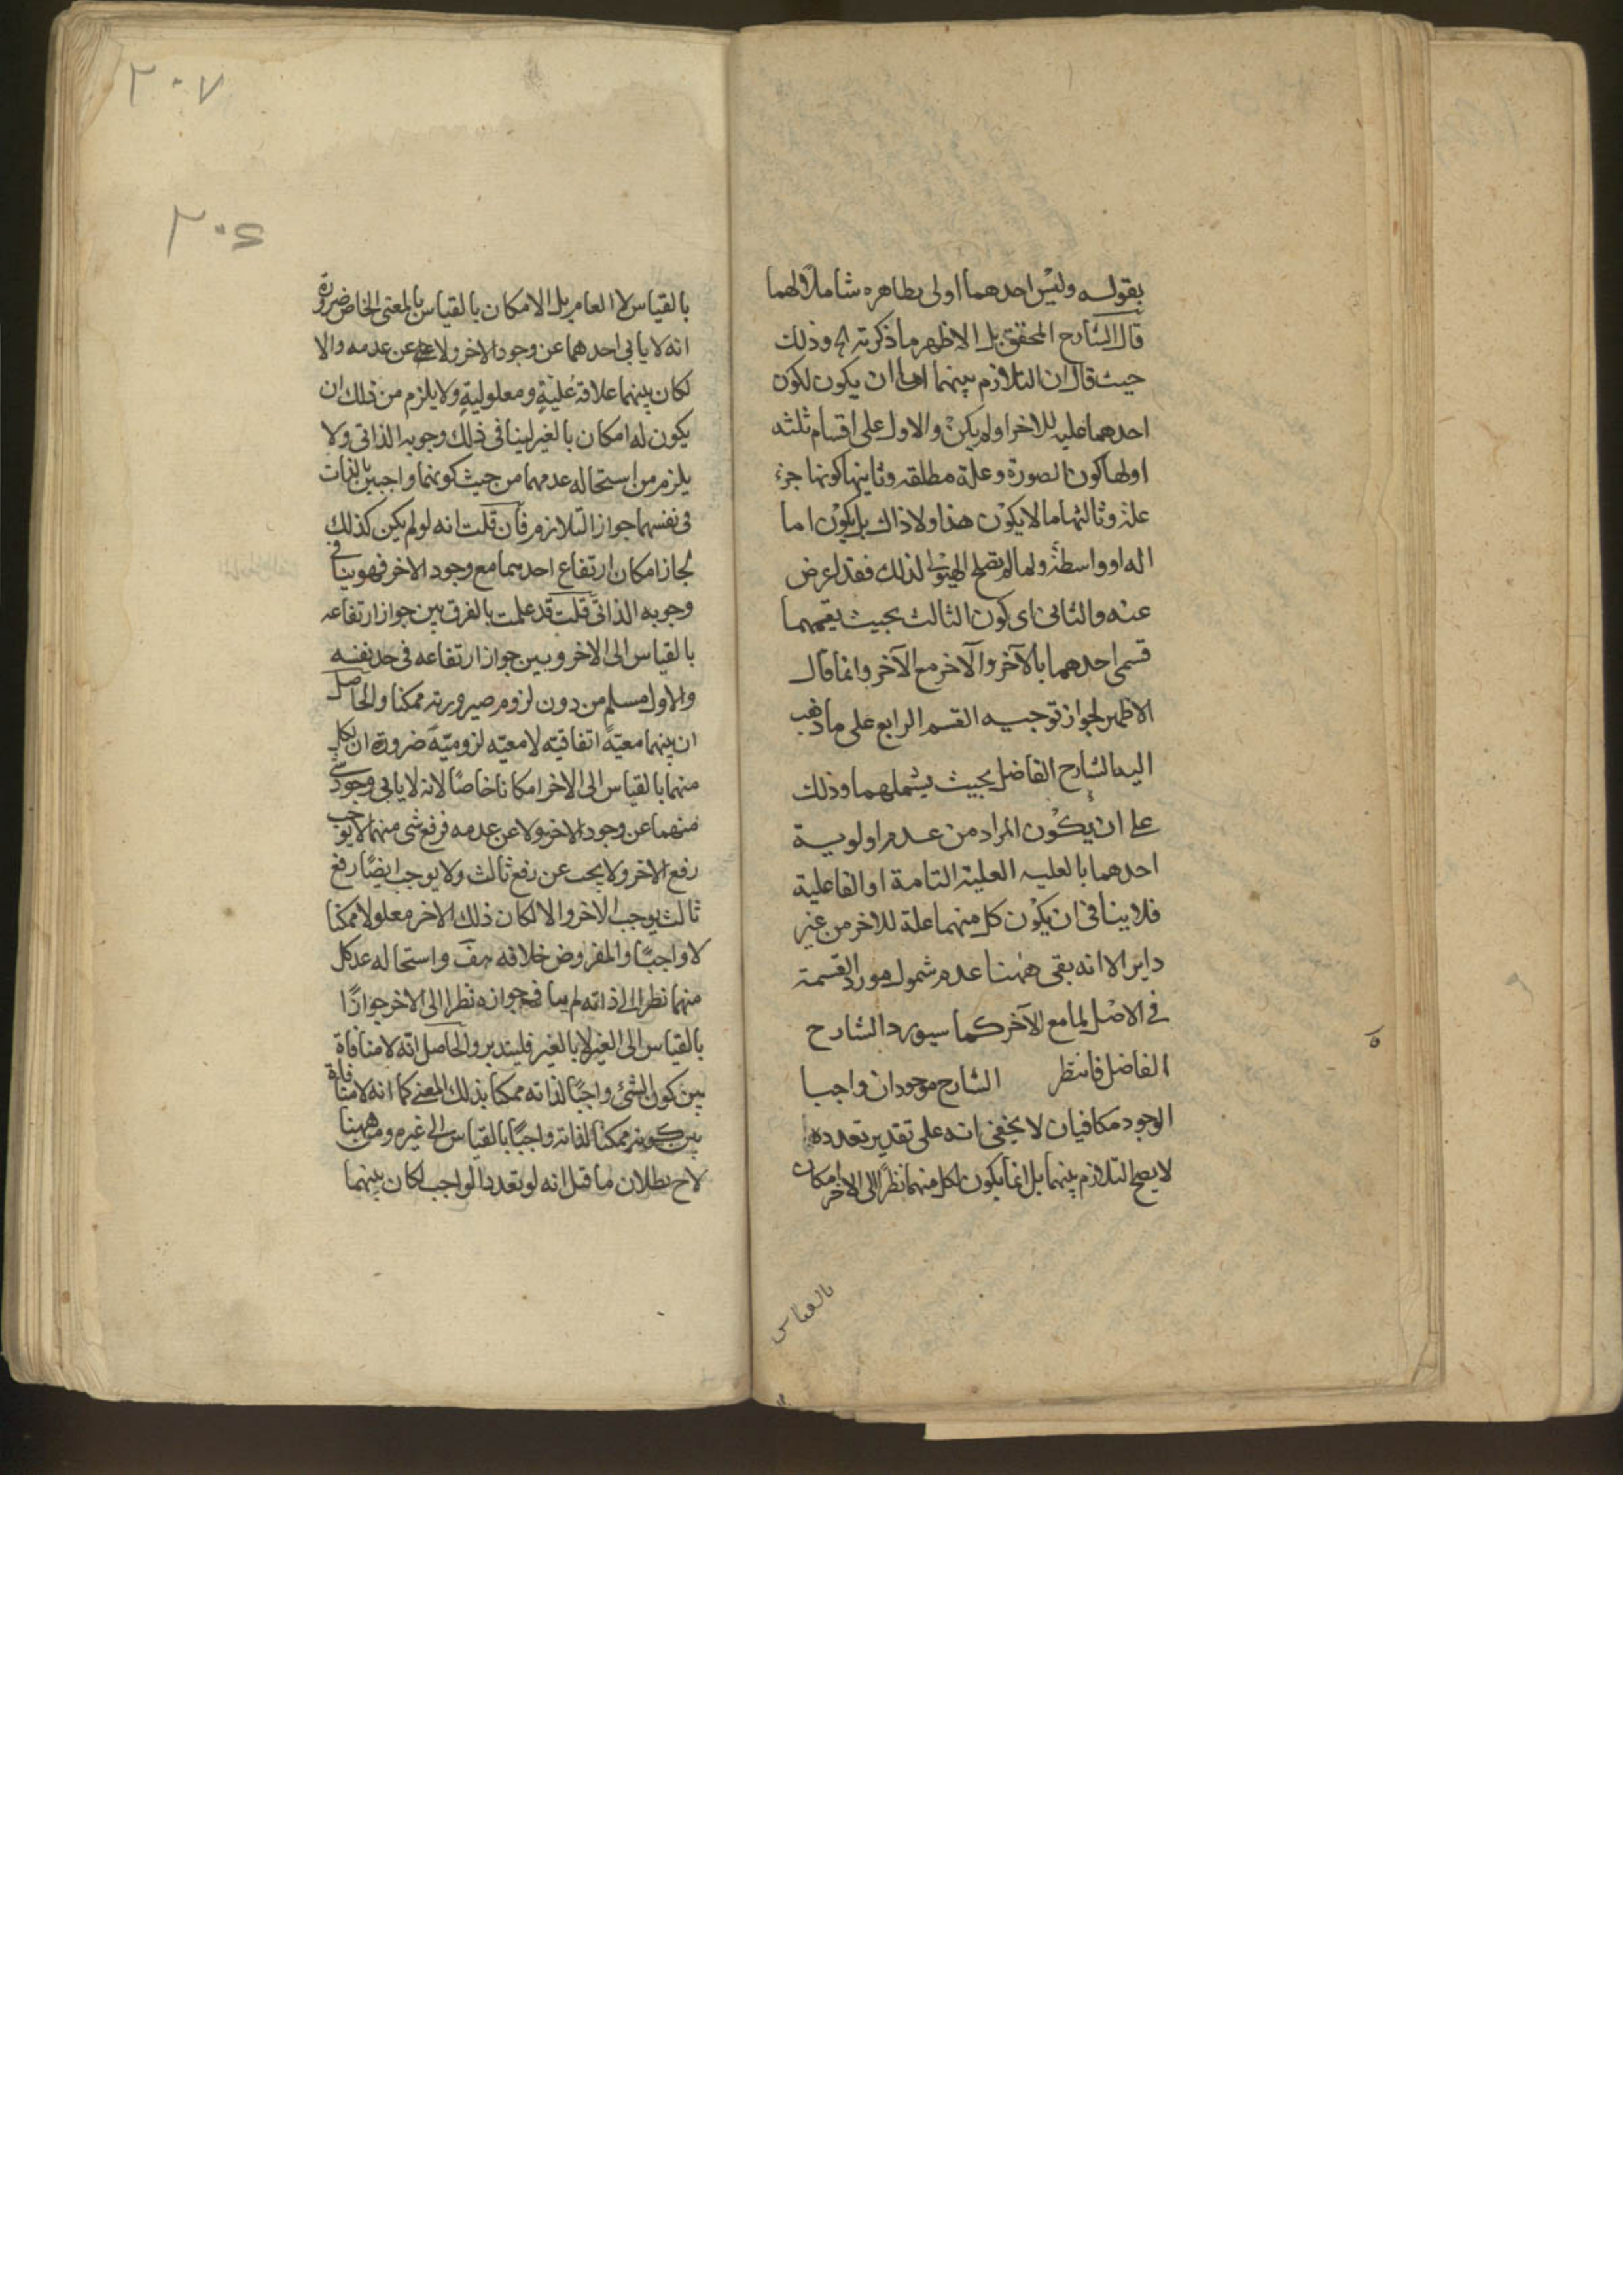 بقوله وليس احدهما اولى بظاهره شاملا لهما
قال الشارح المحقق بل الاظهر ما ذكرته الخ وذلك
حيث قال ان التلازم بينهما اما ان يكون لكون
احدهما علية للاخر او لم يكن والاول على اقسام ثلثه
اولها كون الصورة وعلة مطلقه وثانيها كونها جزء
علة وثالثها ما لا يكون هذا ولا ذاك بل يكون اما
اله او واسطة ولما لم يصلح الهيولى لذلك فقد اعرض
عنه والثانى اى كون الثالث بحيث يقيمهما
قسمى احدهما بالآخر والآخر مع الآخر وانما قال
الاظهر لجواز توجيه القسم الرابع على ما ذهب
اليه الشارح الفاضل بحيث يشملهما وذلك
على ان يكون المراد من عدم اولوية
احدهما بالعليه العلية التامة او الفاعلية
فلا ينافى ان يكون كل منهما علة للاخر من غير
داير الا انه بقى ههنا عدم شمول مورد القسمة
فى الاصل لما مع الآخر كما سيورد الشارح
الفاضل فانتظر الشارح موجودان واجبا
الوجود مكافيان لا يخفى انه على تقدير تعدده
لا يصح التلازم بينهما بل انما يكون لكل منهما نظرا الى الاخر امكان
بالقياس
٢٠٧
٢٠٤
بالقياس لا العام بل الامكان بالقياس بالمعنى الخاص ضرورة
انه لا يابى احدهما عن وجود الاخر ولا عن عدمه والا
لكان بينهما علاقة علية ومعلولية ولا يلزم من ذلك ان
يكون له امكان بالغير لينافى ذلك وجوبه الذاتى ولا
يلزم من استحاله عدمهما من حيث كونهما واجبين بالذات
فى نفسهما جواز التلازم فان قلت انه لو لم يكن كذلك
لجاز امكان ارتفاع احدهما مع وجود الاخر فهو ينافى
وجوبه الذاتى قلت قد علمت بالفرق بين جواز ارتفاعه
بالقياس الى الاخر وبين جواز ارتفاعه فى حد نفسه
والاول مسلم من دون لزوم صيرورته ممكنا والحاصل
ان بينهما معية اتفاقيه لا معيه لزومية ضرورة ان لكل
منهما بالقياس الى الاخر امكانا خاصا لانه لا يابى وجود شى
منهما عن وجود الاخر ولا عن عدمه فرفع شى منهما لا يوجب
رفع الاخر ولا يجب عن رفع ثالث ولا يوجب ايضا رفع
ثالث يوجب الاخر والا لكان ذلك الاخر معلولا ممكنا
لا واجبا والمفروض خلافه هف واستحاله عدم كل
منهما نظرا الى ذاته لم ينافى جوازه نظرا الى الاخر جوازا
بالقياس الى الغير لا بالغير فليتدبر والحاصل انه لا منافاة
بين كون الشئ واجبا لذاته ممكنا بذلك المعنى كما انه لا منافاة
بين كونه ممكنا لذاته واجبا بالقياس الى غيره ومن ههنا
لاح بطلان ما قيل انه لو تعدد الواجب لكان بينهما